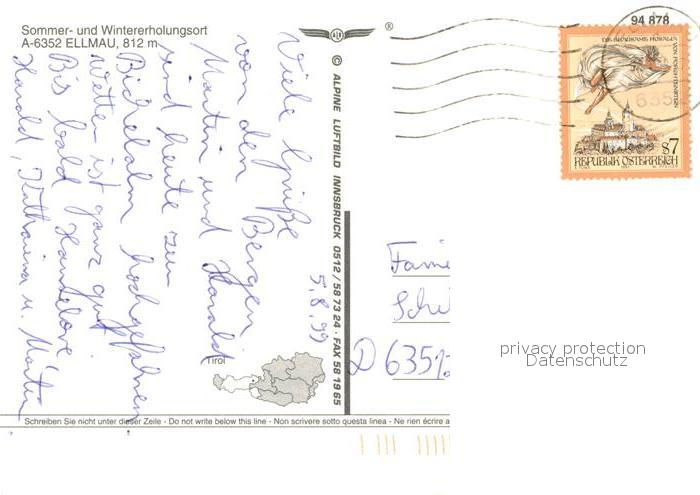 Sommer- und Wintererholungsort
A-6352 ELLMAU, 812 m
®
© ALPINE LUFTBILD INNSBRUCK 0512 / 58 73 24 · FAX 58 19 65
94 878
DES BRÄUTIGAMS
VON FORCHTENSTEIN
635
s7
REPUBLIK ÖSTERREICH
5.8.99
Viele Grüße
von den Bergen
Martin und Harald
sind heute zum
hochgefahren
Wetter ist ganz gut
Bis bald
Harald, Katharina u. Martin
Fami
Schi
D 6351
Tirol
privacy protection
Datenschutz
Schreiben Sie nicht unter dieser Zeile - Do not write below this line - Non scrivere sotto questa linea - Ne rien écrire a